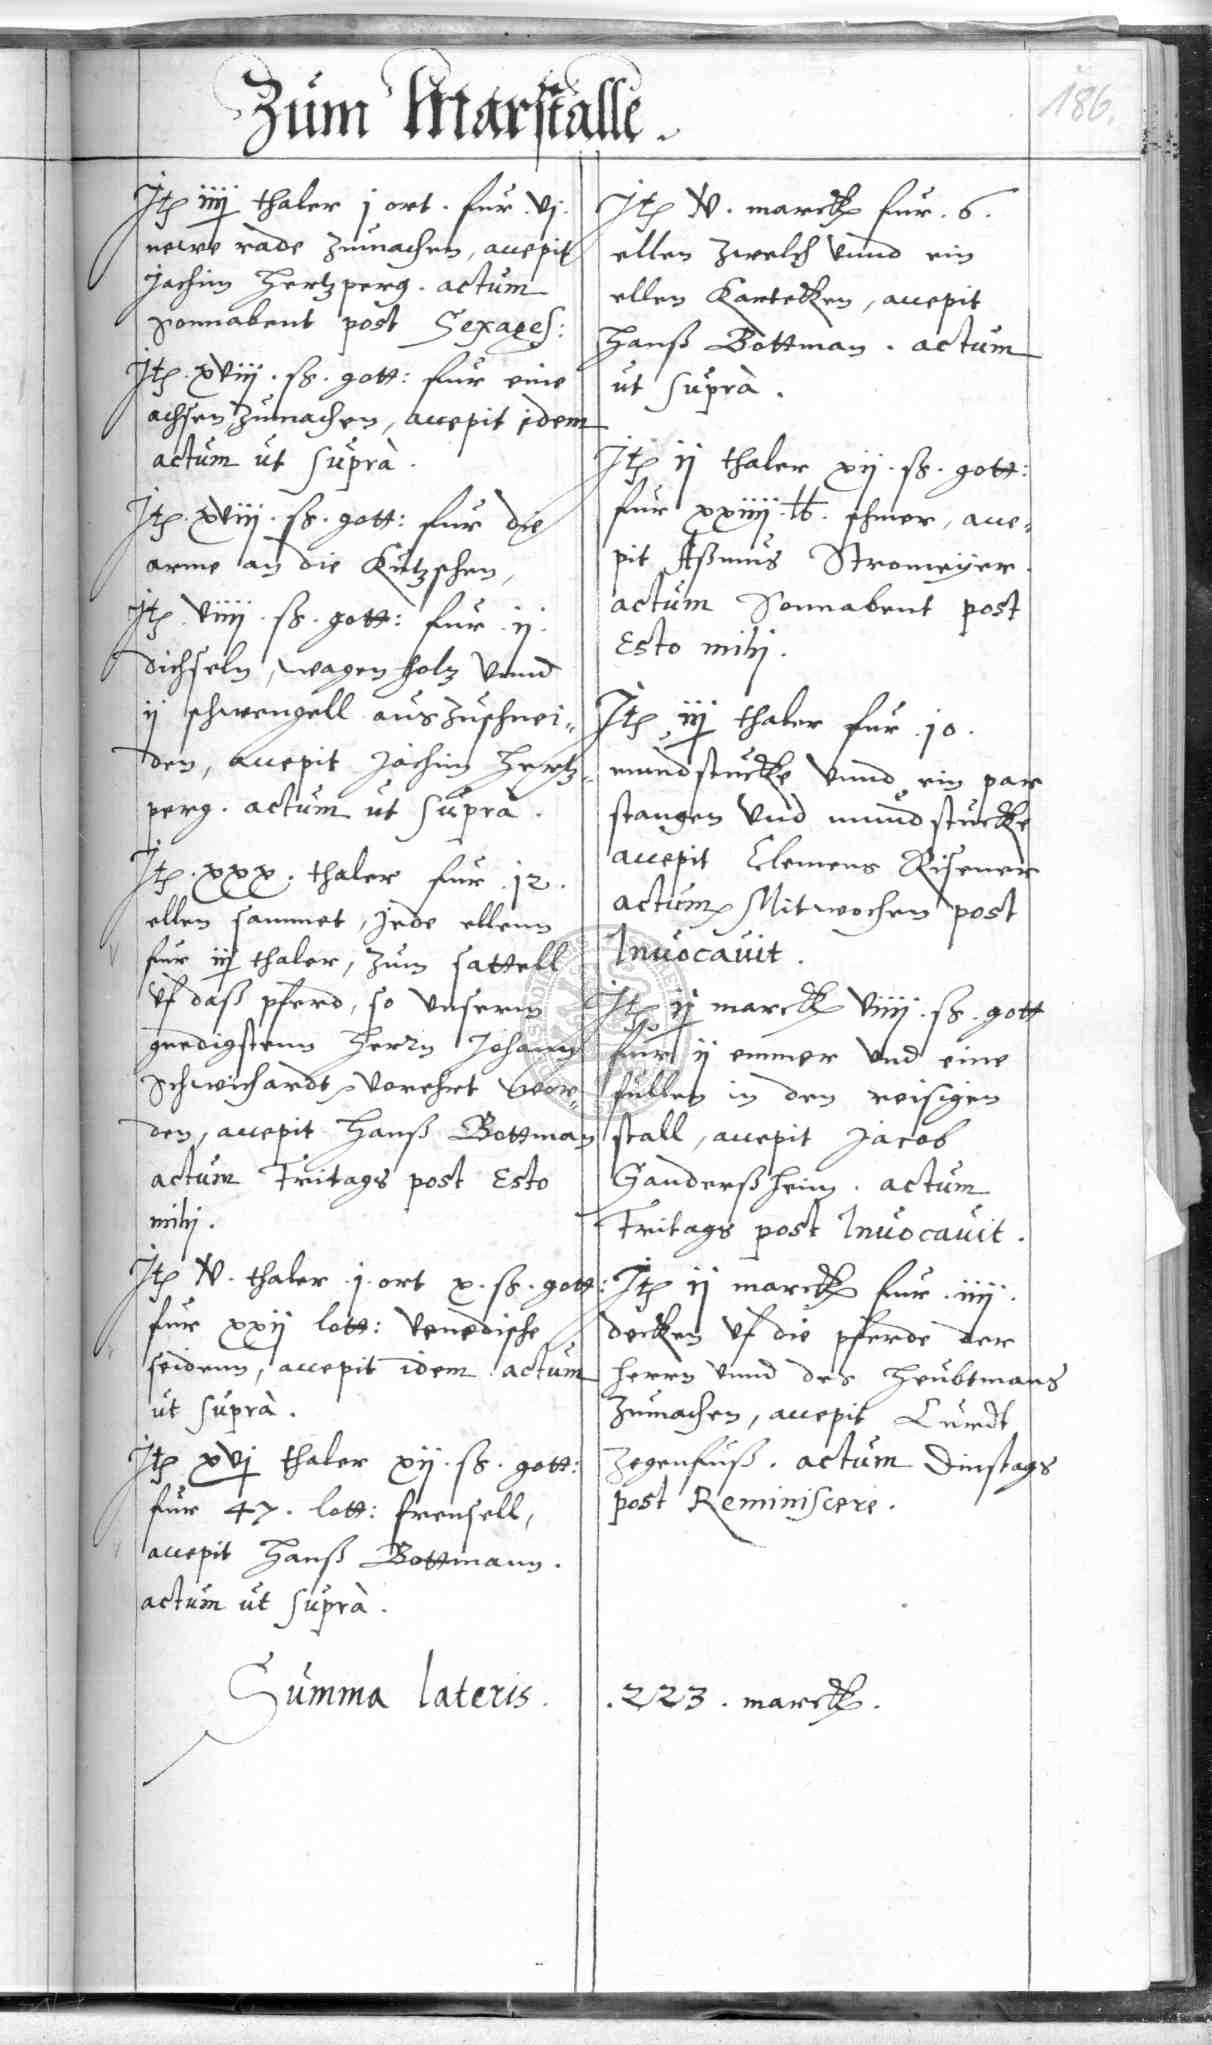 Zum Marstalle.
186.
Itē iiij thaler j ort. fur. vj.
newe rade zumachen, accepit
Jochim Hertzperg. actum
Sonnabent post Sexages:
Itē. xviij. ß. gott: fur eine
achsen zumachen, accepit idem
actum ut suprà.
Itē. xviij. ß. gott: fur die
arme an die Kutzschen,
Itē. viiij. ß. gott: fur. ij.
dichseln, wagenholz vnnd
ij schwengell auszuschnei-
den, accepit Jochim Hertz-
perg. actum ut suprà.
Itē. xxx. thaler fur. 12.
ellen sammet, jede ellenn
fur iij thaler, zum sattell
vf daß pferd, so vnserm
gnedigstenn Herrn Johann
Schwichardt vorehrt wor-
den, accepit Hanß Bottman
actum Fritags post Esto
mihj.
Itē v. thaler. j. ort x. ß. gott:
fur xxij lott: Venedische
seidenn, accepit idem actum
ut suprà.
Itē xvj thaler xij. ß. gott:
fur 47. lott: frensell,
accepit Hanß Bottmann.
actum ut suprà.
Itē v. marck fur. 6.
ellen zwelch vnnd ein
ellen Kartecken, accepit
Hanß Bottman. actum
ut suprà.
Itē ij thaler xij. ß. gott:
fur xxiiij. lb. schmer, acce-
pit Aßmus Stromeyer.
actum Sonnabent post
Esto mihj.
Itē iij thaler fur. 10.
mundstucke vnnd ein par
stangen vnd mundstucke
accepit Clemens Risener
actum Mitwochen post
Invocavit.
Itē ij marck viiij. ß. gott
fur ij emmer vnd eine
fullen in den reisigen
stall, accepit Jacob
Ganderßheim. actum
Fritags post Invocavit.
Itē ij marck fur. iiij.
decken vf die pferde der
herrn vnnd des Heubtmans
zumachen, accepit Curdt
Zegenfuß. actum Dinstags
post Reminiscere.
Summa lateris. .223. marck.